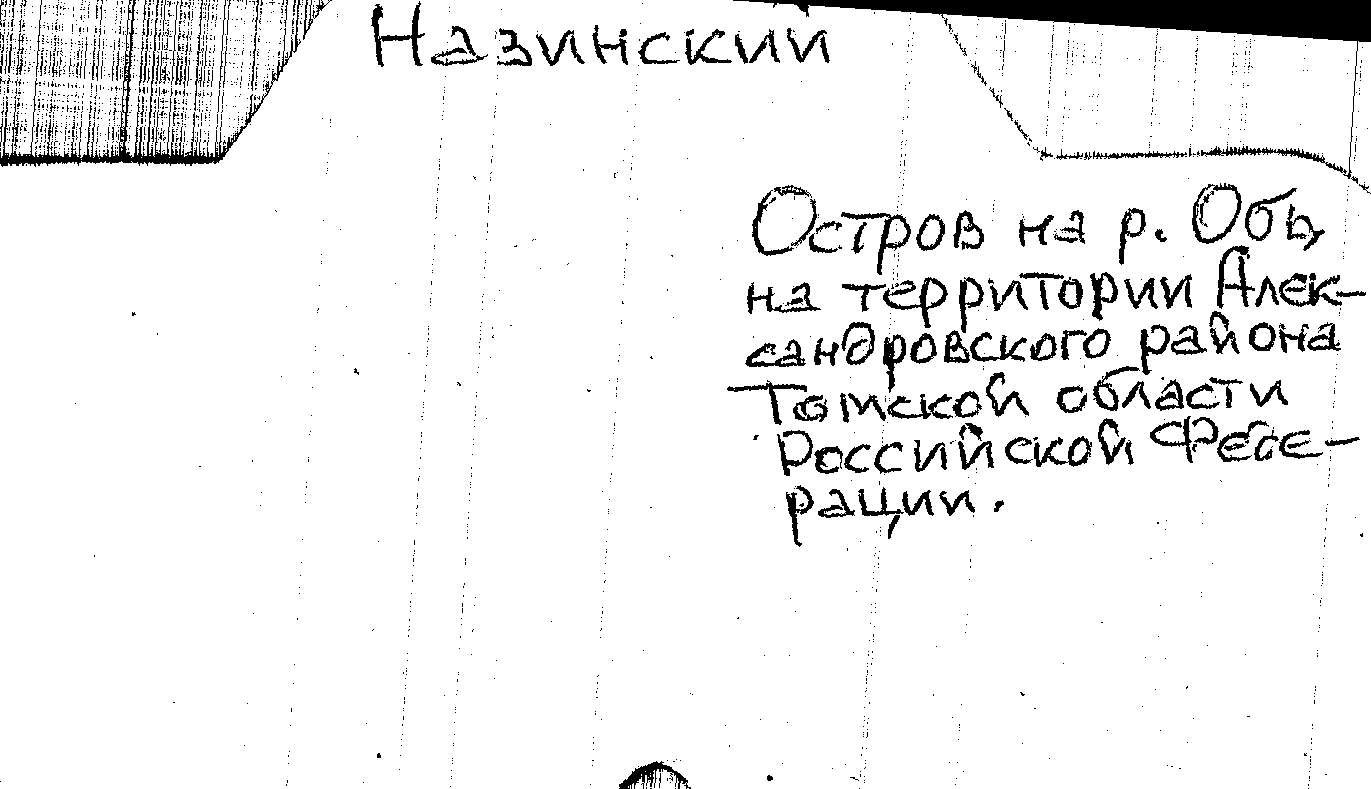 Назинский
Остров на р. Обь,
на территории Алек-
сандровского района
Томской области
Российской Феде-
рации.